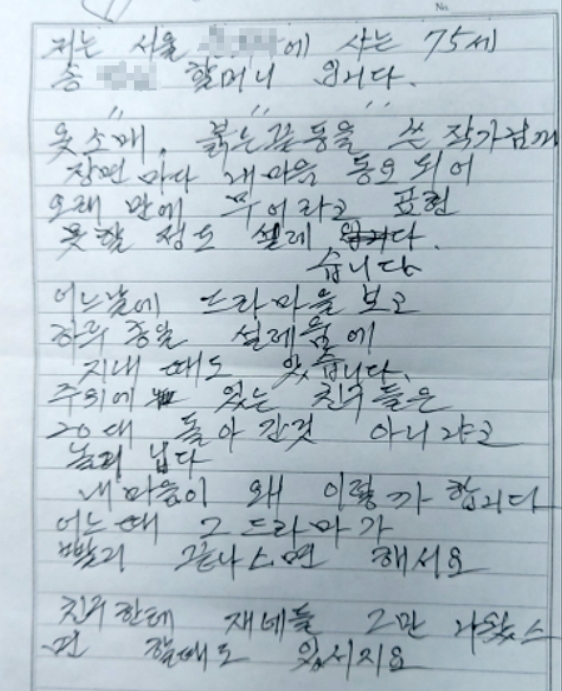 No.
저는 서울 에 사는 75세
송 할머니 입니다.
옷소매. 붉은끝동을 쓴 작가님께
장면 마다 내마음 동요 되어
오래 만에 무어라고 표현
못할 정도 설레 습니다.
어느날에 드라마을 보고
하루 종일 설레움에
지내 때도 있습니다.
주위에 있는 친구들은
20대 돌아 간것 아니 랴고
놀리 닙다
내마음이 왜 이럴까 합니다
어느때 그 드라마가
빨리 끝나스면 해서요
친구한테 재네들 그만 나왔스
면 할때도 있서지요